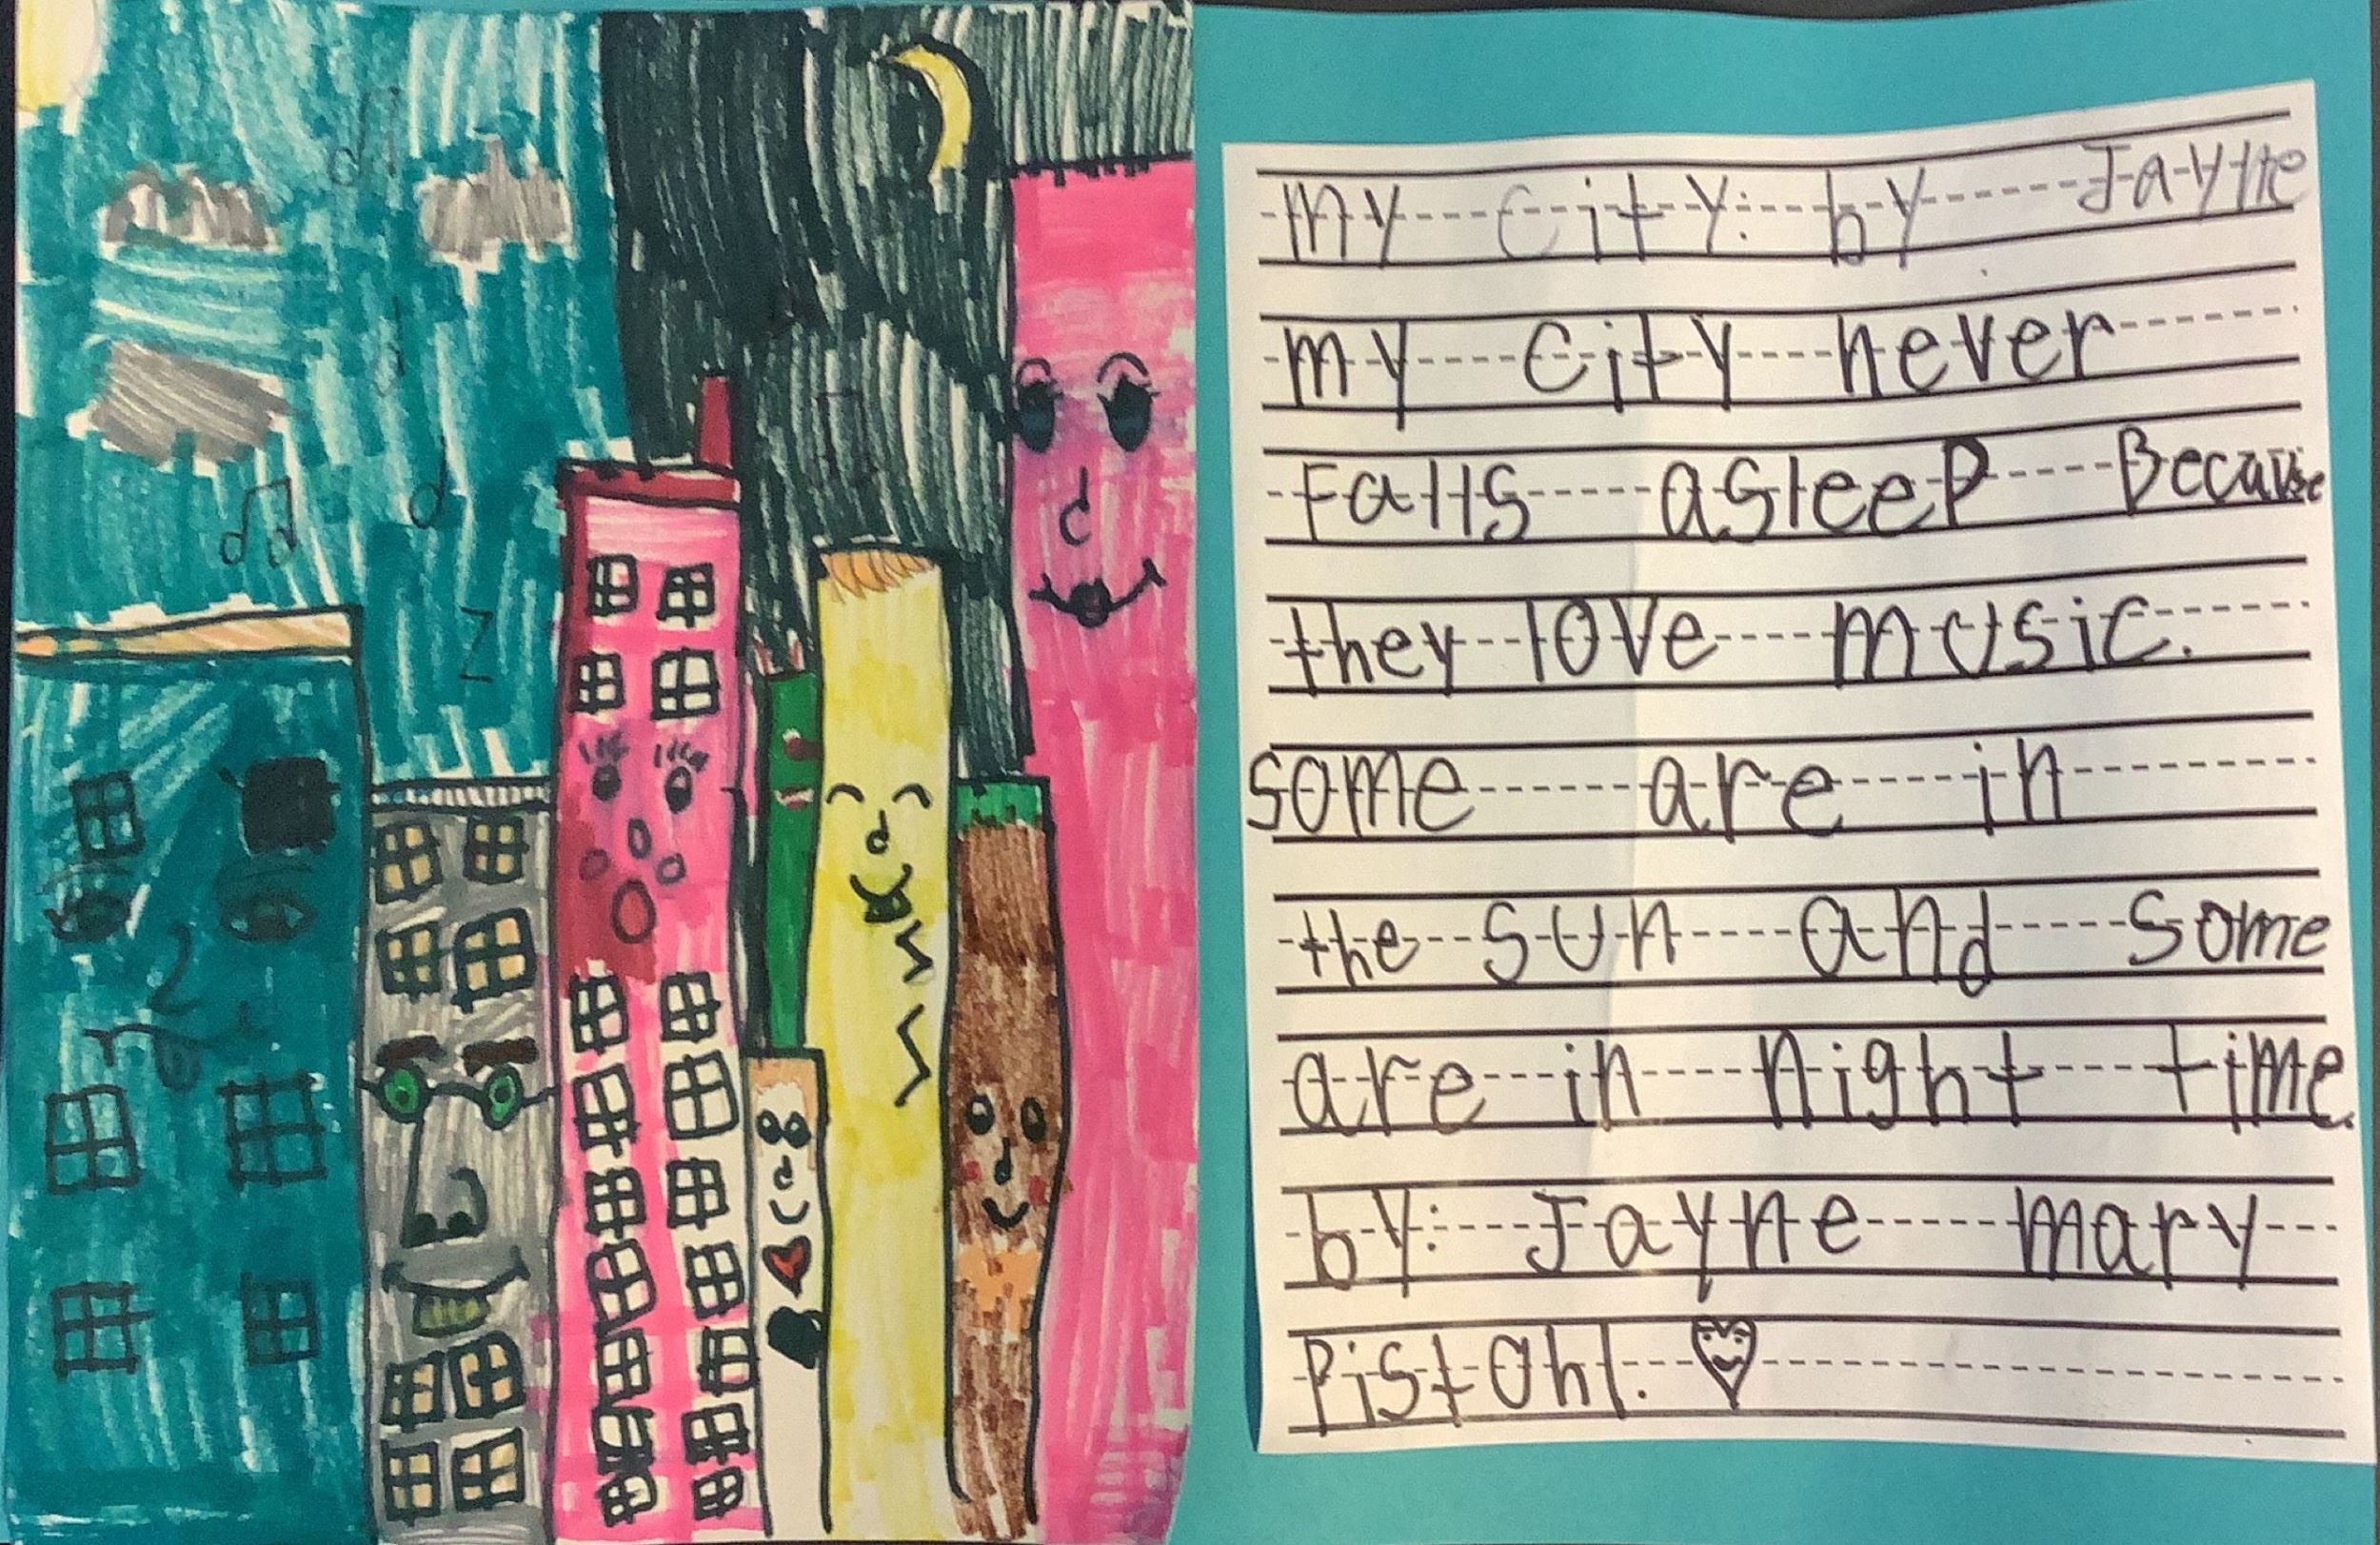 my city: by Jayne
my city never
Falls asleep Because
they love music.
some are in
the sun and some
are in night time.
by: Jayne mary
Pistohl.
Z